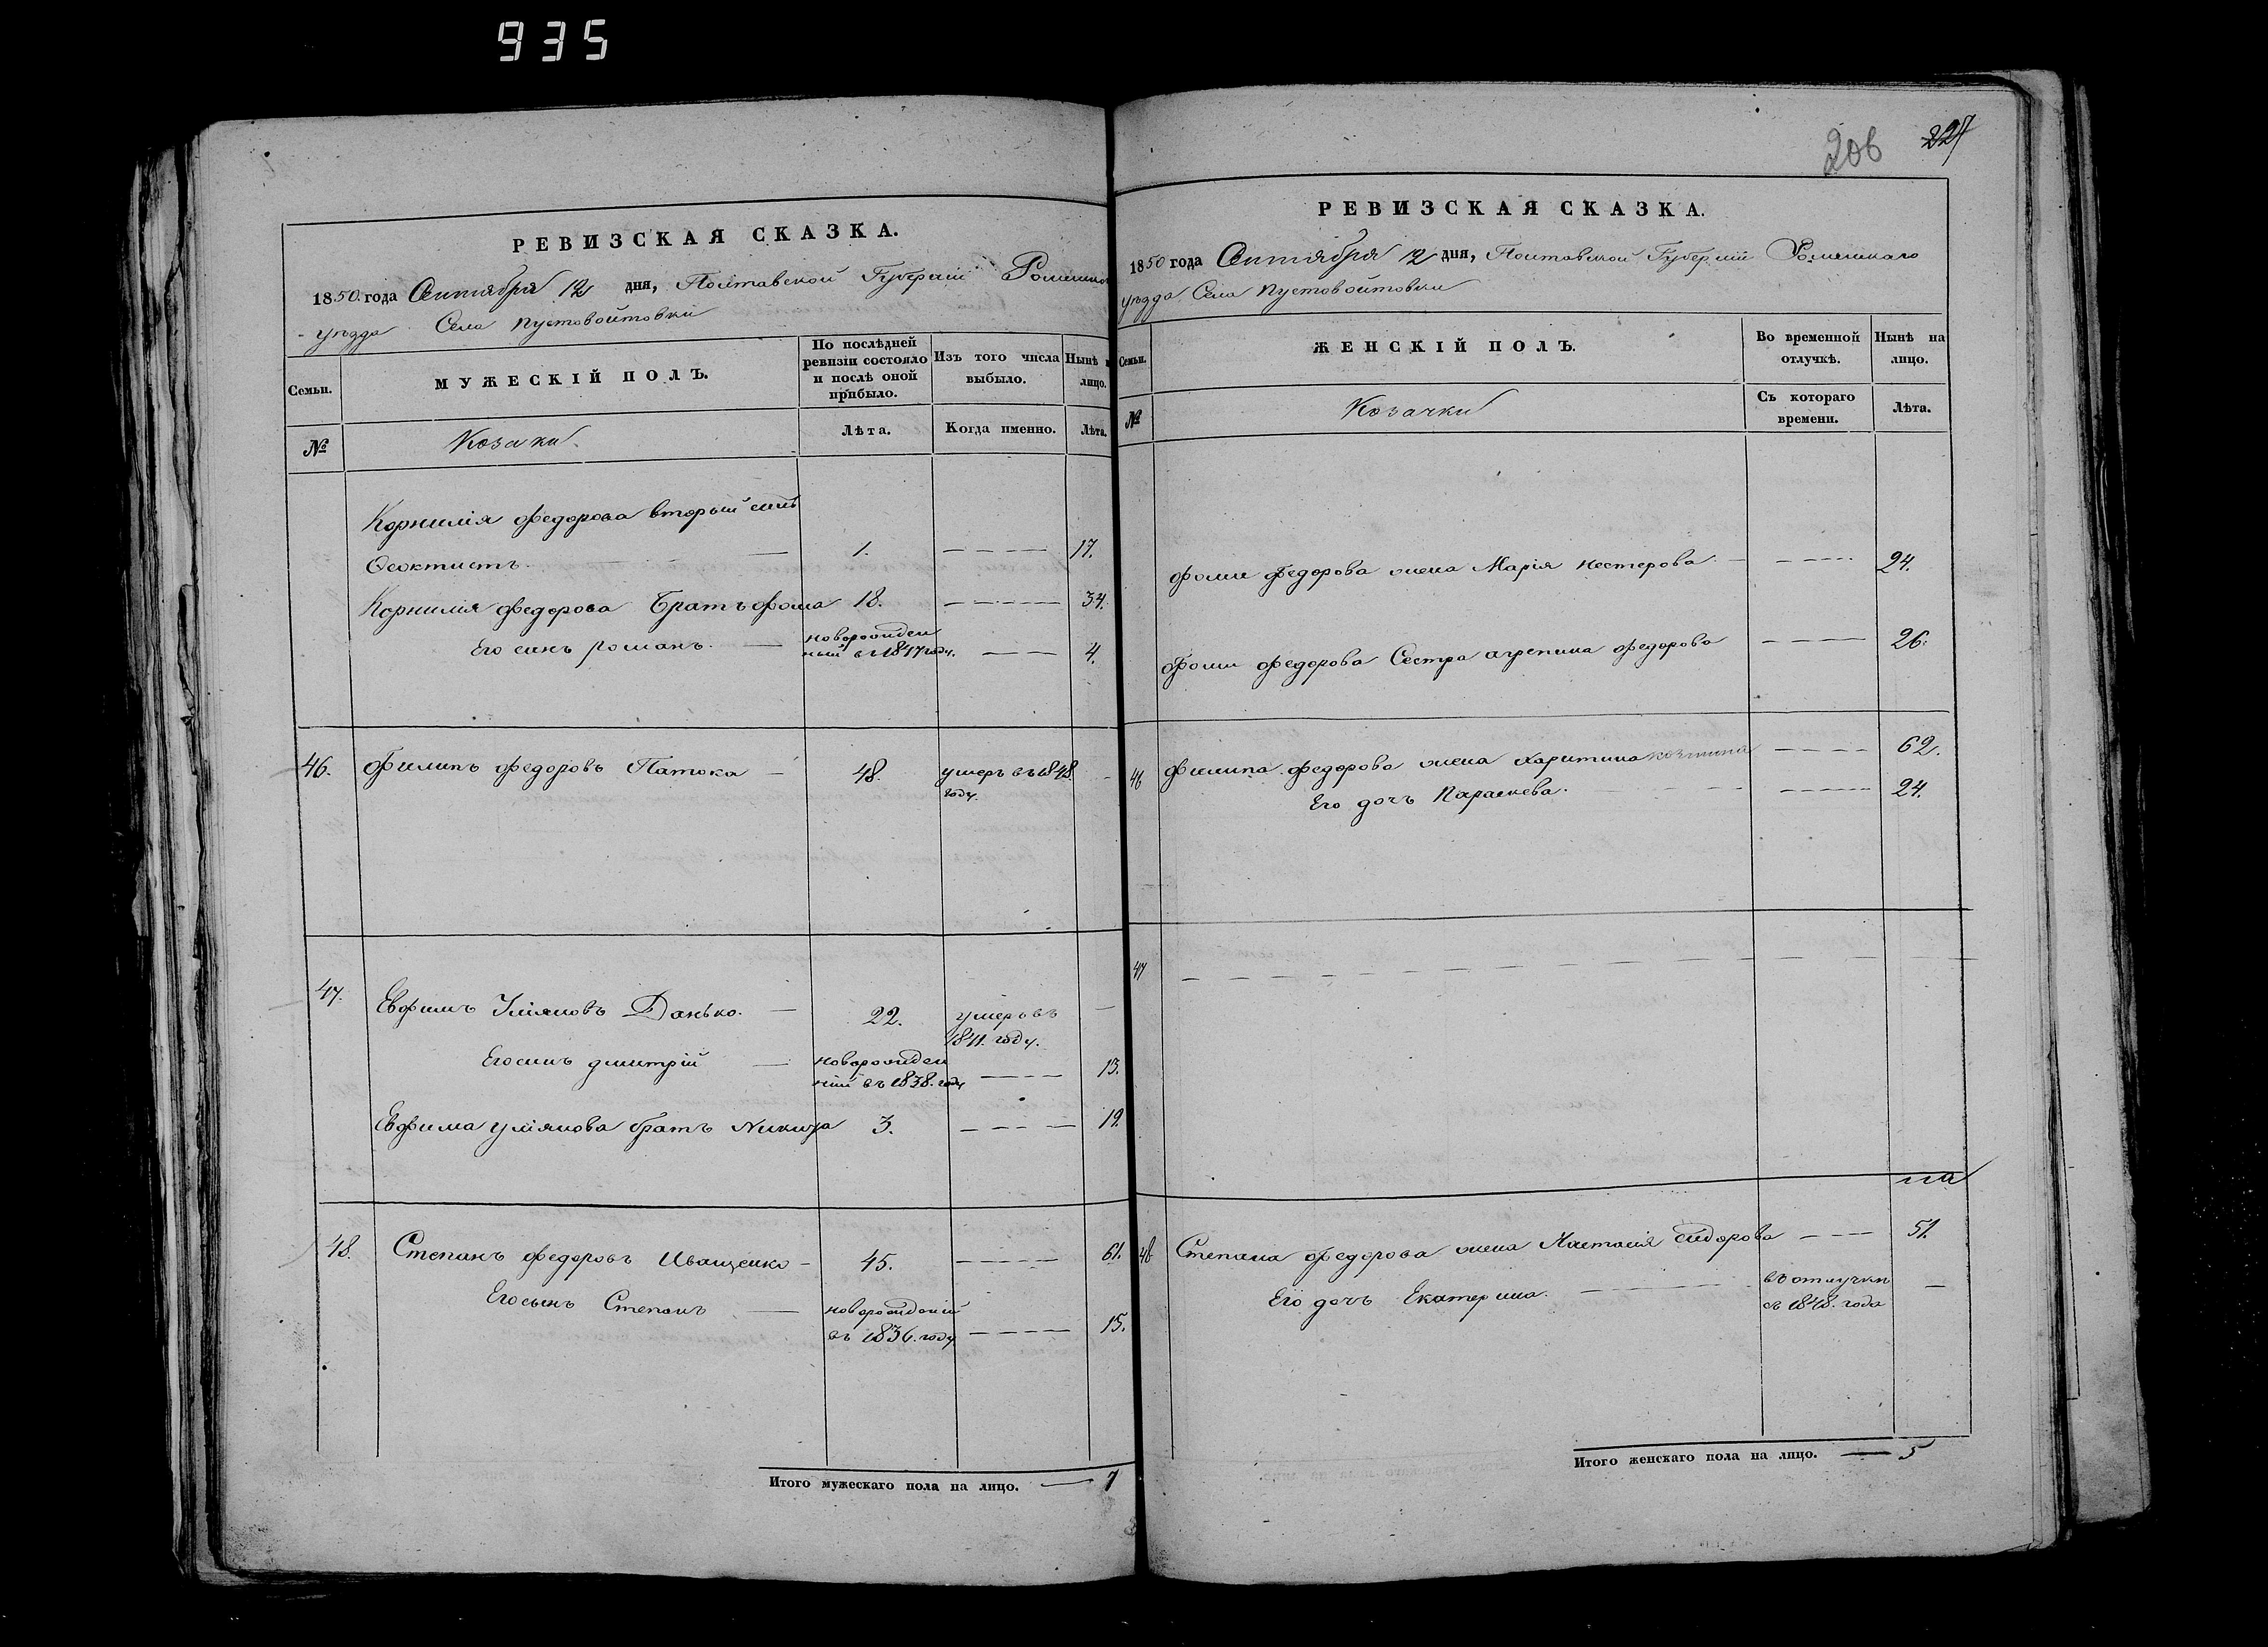 935
РЕВИЗСКАЯ СКАЗКА.
1850 года Сентября 12 дня, Полтавской Губернiи Роменско
уѣзда Села Пустовойтовки
Семьи. МУЖЕСКІЙ ПОЛЪ. По послѣдней ревизіи состояло и послѣ оной прибыло. Изъ того числа выбыло. Нынѣ лицо.
№ Козаки. Лѣта. Когда именно. Лѣта.
Корнилія федорова вторый синъ
Ѳеоктистъ. — 1. — — — — 17.
Корнилія федорова Братъ фома 18. — — — — 34.
Его синъ романъ. — новорожден
ный въ 1847 году. — — 4.
46. Филипъ федоровъ Патока — 48. умеръ въ 1848. —
году.
47. Евфимъ Уліяновъ Данько. — 22. умеръ въ —
1841. году.
Его синъ дмитрій — новорожден
ній въ 1838. году — — — — 13.
Евфима уліянова братъ Никита 3. — — — — 19.
48. Степанъ федоровъ Иващенко — 45. — — — — 61.
Его сынъ Степанъ — новорожденій
въ 1836. году — — — — 15.
Итого мужескаго пола на лицо. — 7
206 227
РЕВИЗСКАЯ СКАЗКА.
1850 года Сентября 12 дня, Полтавской Губерніи Роменскаго
уѣзда Села Пустовойтовки
Семьи. ЖЕНСКІЙ ПОЛЪ. Во временной отлучкѣ. Нынѣ на лицо.
№ Козачки Съ котораго времени. Лѣта.
фоми федорова жена Марія нестерова — — — — — 24.
фоми федорова Сестра агрепина федорова — — — — 26.
46 Филипа федорова жена харитина — — — — 62.
Его дочъ Параскева. — — — — 24.
47 — — — — — — — —
48 Степана федорова жена Настасія сидорова — — — 51.
Его дочъ Екатерина. — въ отлучки —
съ 1848. года
Итого женскаго пола на лицо. — 5